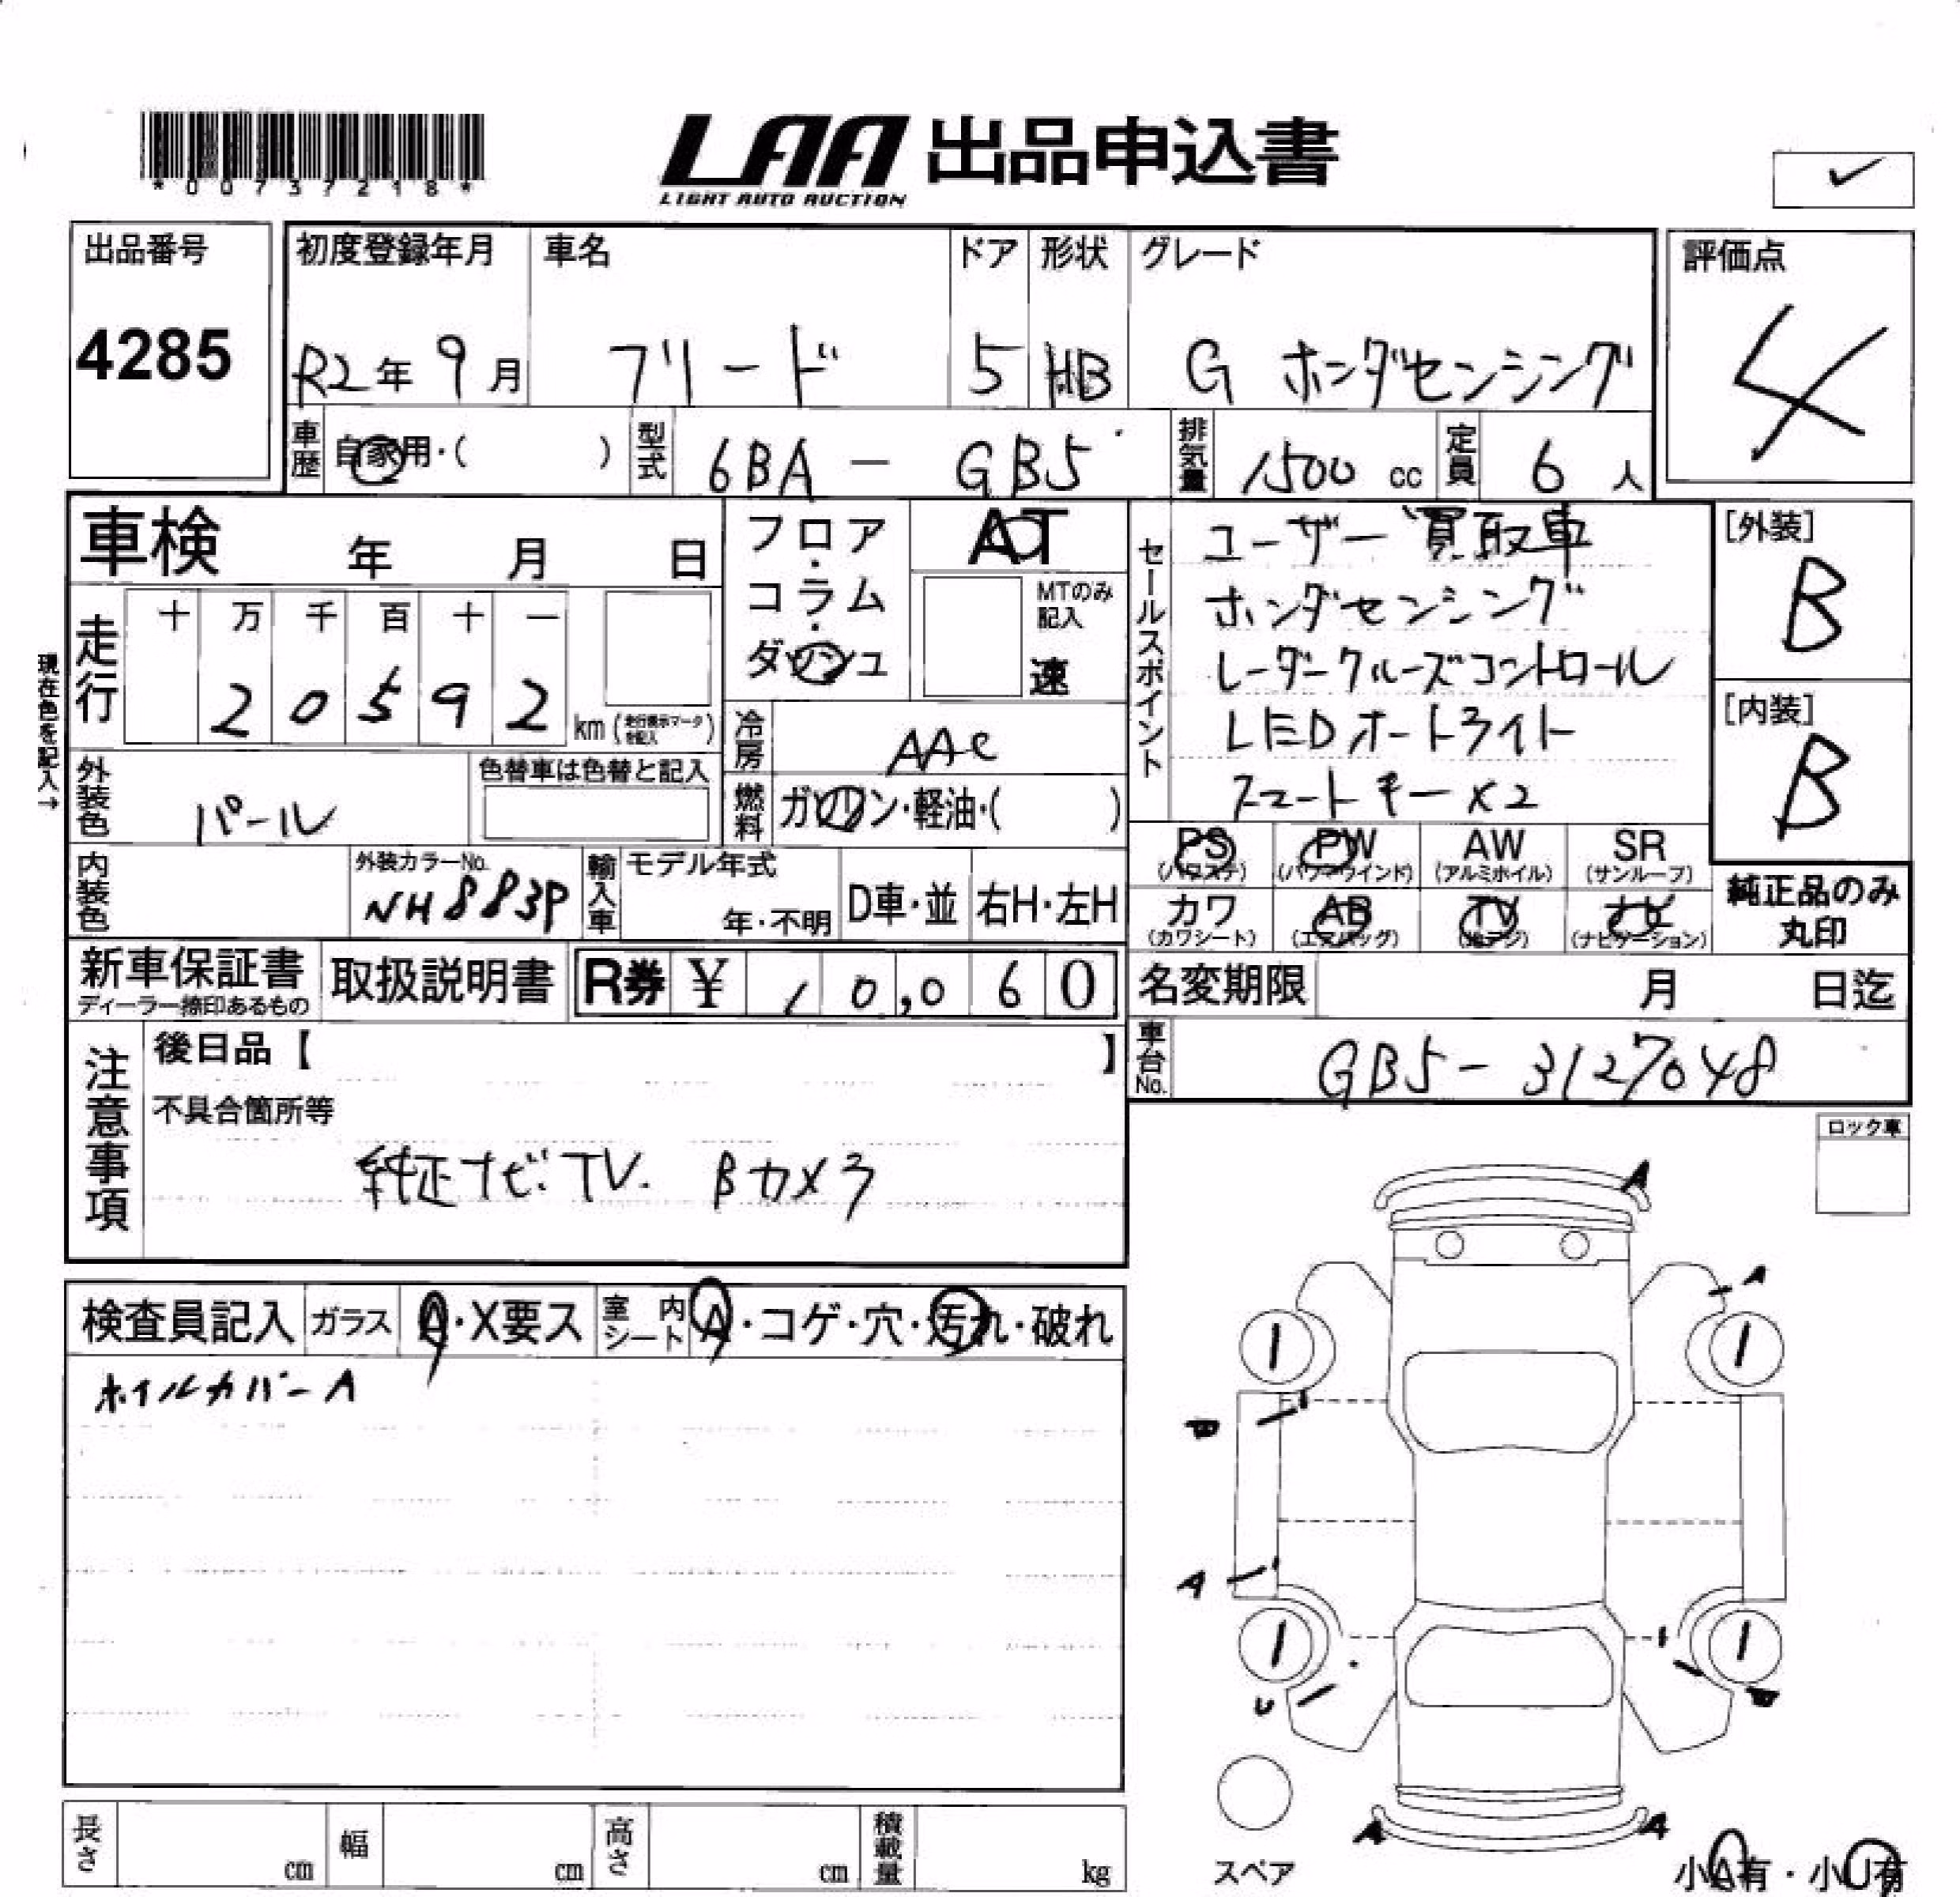 *00737218*
LAA 出品申込書
LIGHT AUTO AUCTION
出品番号
4285
初度登録年月 車名 ドア 形状 グレード
R2年 9月 フリード 5 HB G ホンダセンシング
評価点
4
車歴 自家用・( ) 型式 6BA - GB5 排気量 1500 cc 定員 6 人
車検 年 月 日
フロア・コラム・ダッシュ
AT
MTのみ記入
速
走行 十 万 千 百 十 一
2 0 5 9 2 km (走行表示マークを記入)
現在色を記入→
外装色 パール
色替車は色替と記入
冷房 AAC
燃料 ガソリン・軽油・( )
内装色
外装カラーNo. NH883P
輸入車 モデル年式
年・不明 D車・並 右H・左H
セールスポイント
ユーザー買取車
ホンダセンシング
レーダークルーズコントロール
LEDオートライト
スマートキー×2
[外装]
B
[内装]
B
PS (パワステ) PW (パワーウインド) AW (アルミホイル) SR (サンルーフ)
カワ (カワシート) AB (エアバッグ) TV (地デジ) ナビ (ナビゲーション)
純正品のみ丸印
新車保証書 ディーラー捺印あるもの
取扱説明書
R券 ¥ 10,060
名変期限 月 日迄
車台No. GB5-3127048
注意事項
後日品【 】
不具合箇所等
純正ナビ.TV. Bカメラ
ロック車
検査員記入 ガラス A・X要ス 室内シート A・コゲ・穴・汚れ・破れ
ホイルカバーA
A
A
1 1
B
A
1 1
U B
A A
スペア
小A有・小U有
長さ cm 幅 cm 高さ cm 積載量 kg